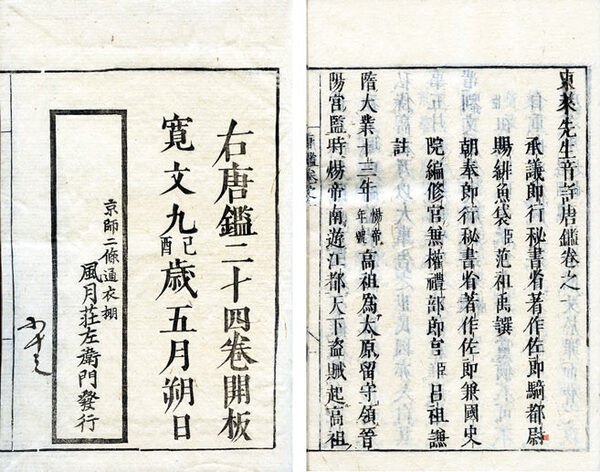 東萊先生音註唐鑑卷之一
承議郎行秘書省著作佐郎騎都尉
賜緋魚袋臣范祖禹撰
朝奉郎行秘書省著作佐郎兼國史
院編修官兼權禮部郎官臣呂祖謙
註
隋大業十三年煬帝年號高祖為太原留守領晉
陽宮監時煬帝南遊江都天下盜賊起高祖
右唐鑑二十四卷開板
寬文九己酉歲五月朔日
京師二條通衣棚
風月莊左衛門發行